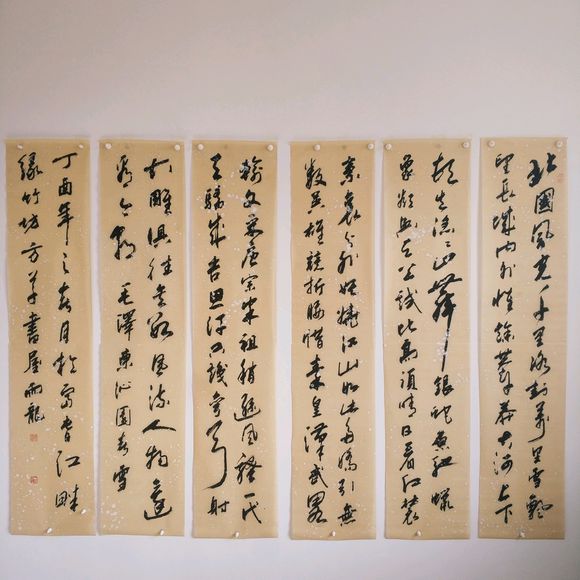 北國風光千里冰封萬里雪飄
望長城內外惟餘莽莽大河上下
頓失滔滔山舞銀蛇原馳蠟
象欲與天公試比高須晴日看紅裝
素裹分外妖嬈江山如此多嬌引無
數英雄競折腰惜秦皇漢武略
輸文采唐宗宋祖稍遜風騷一代
天驕成吉思汗只識彎弓射
大雕俱往矣數風流人物還
看今朝 毛澤東沁園春雪
丁酉年之春月於富春江畔
緣竹坊方草書屋雨龍